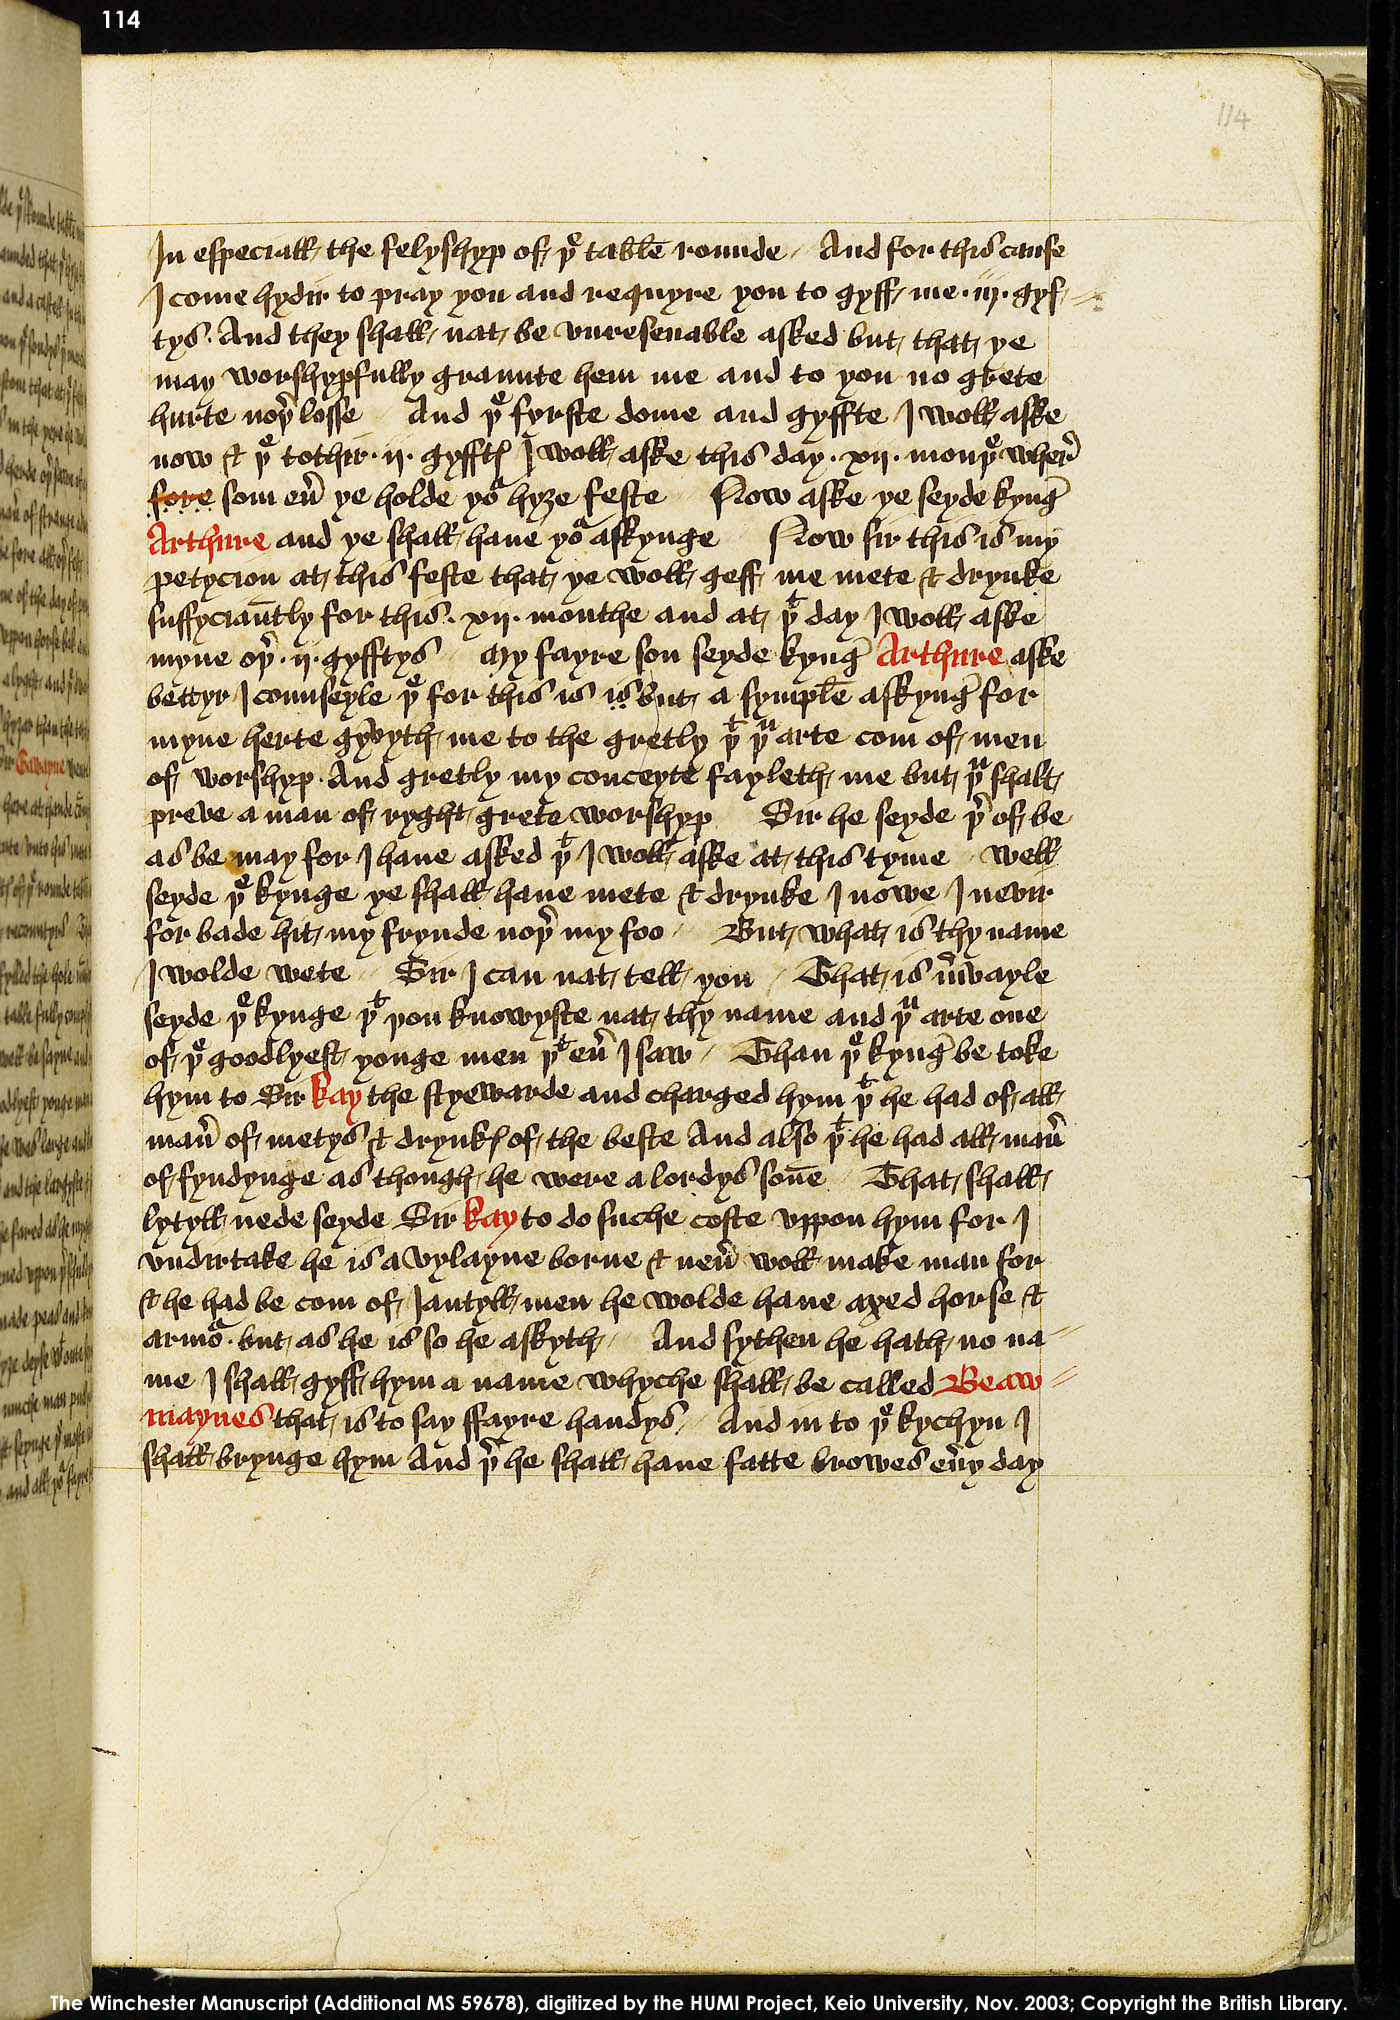 114
114
In especiall the felyshyp of þe table rounde And for this cause
I come hydir to pray you and requyre you to gyff me .iij. gyf-
tys. And they shall nat be vnresenable asked but that ye
may worshypfully graunte hem me and to you no grete
hurte noþer losse And þe fyrste done and gyffte I woll aske
now & þe tothir .ij. gyfftes I woll aske this day .xij. monþe wher
fore som euer ye holde your hyȝe feste Now aske ye seyde kynge
Arthure and ye shall haue your askynge Now sir this is my
petycion at this feste that ye woll geff me mete & drynke
suffyciauntly for this .xij. monthe and at þt day I woll aske
myne oþer .ij. gyfftys My fayre son seyde kynge Arthure aske
bettyr I counseyle þe for this is is but a symple askynge for
myne herte gyvyth me to the gretly þt þu arte com of men
of worshyp. And gretly my conceyte fayleth me but þu shalt
preve a man of ryght grete worshyp Sir he seyde þer of be
as be may for I haue asked þt I woll aske at this tyme Well
seyde þe kynge ye shall haue mete & drynke I nowe I nevir
for bade hit my frynde noþer my foo But what is thy name
I wolde wete Sir I can nat tell you That is mervayle
seyde þe kynge þt þou knowyste nat thy name and þu arte one
of þe goodlyest yonge men þt euer I saw Than þe kynge be toke
hym to Sir kay the styewarde and charged hym þt he had of all
maner of metys & drynkes of the beste And also þt he had all maner
of fyndynge as though he were a lordys sone That shall
lytyll nede seyde Sir kay to do suche coste vppon hym for I
vndirtake he is a vylayne borne & neuer woll make man for
& he had be com of Jantyll men he wolde haue axed horse &
armour. but as he is so he askyth And sythen he hath no na-
me I shall gyff hym a name whyche shall be called Beaw-
maynes that is to say ffayre handys And in to þe kychyn I
shall brynge hym And þer he shall haue fatte browes euery day
The Winchester Manuscript (Additional MS 59678), digitized by the HUMI Project, Keio University, Nov. 2003; Copyright the British Library.